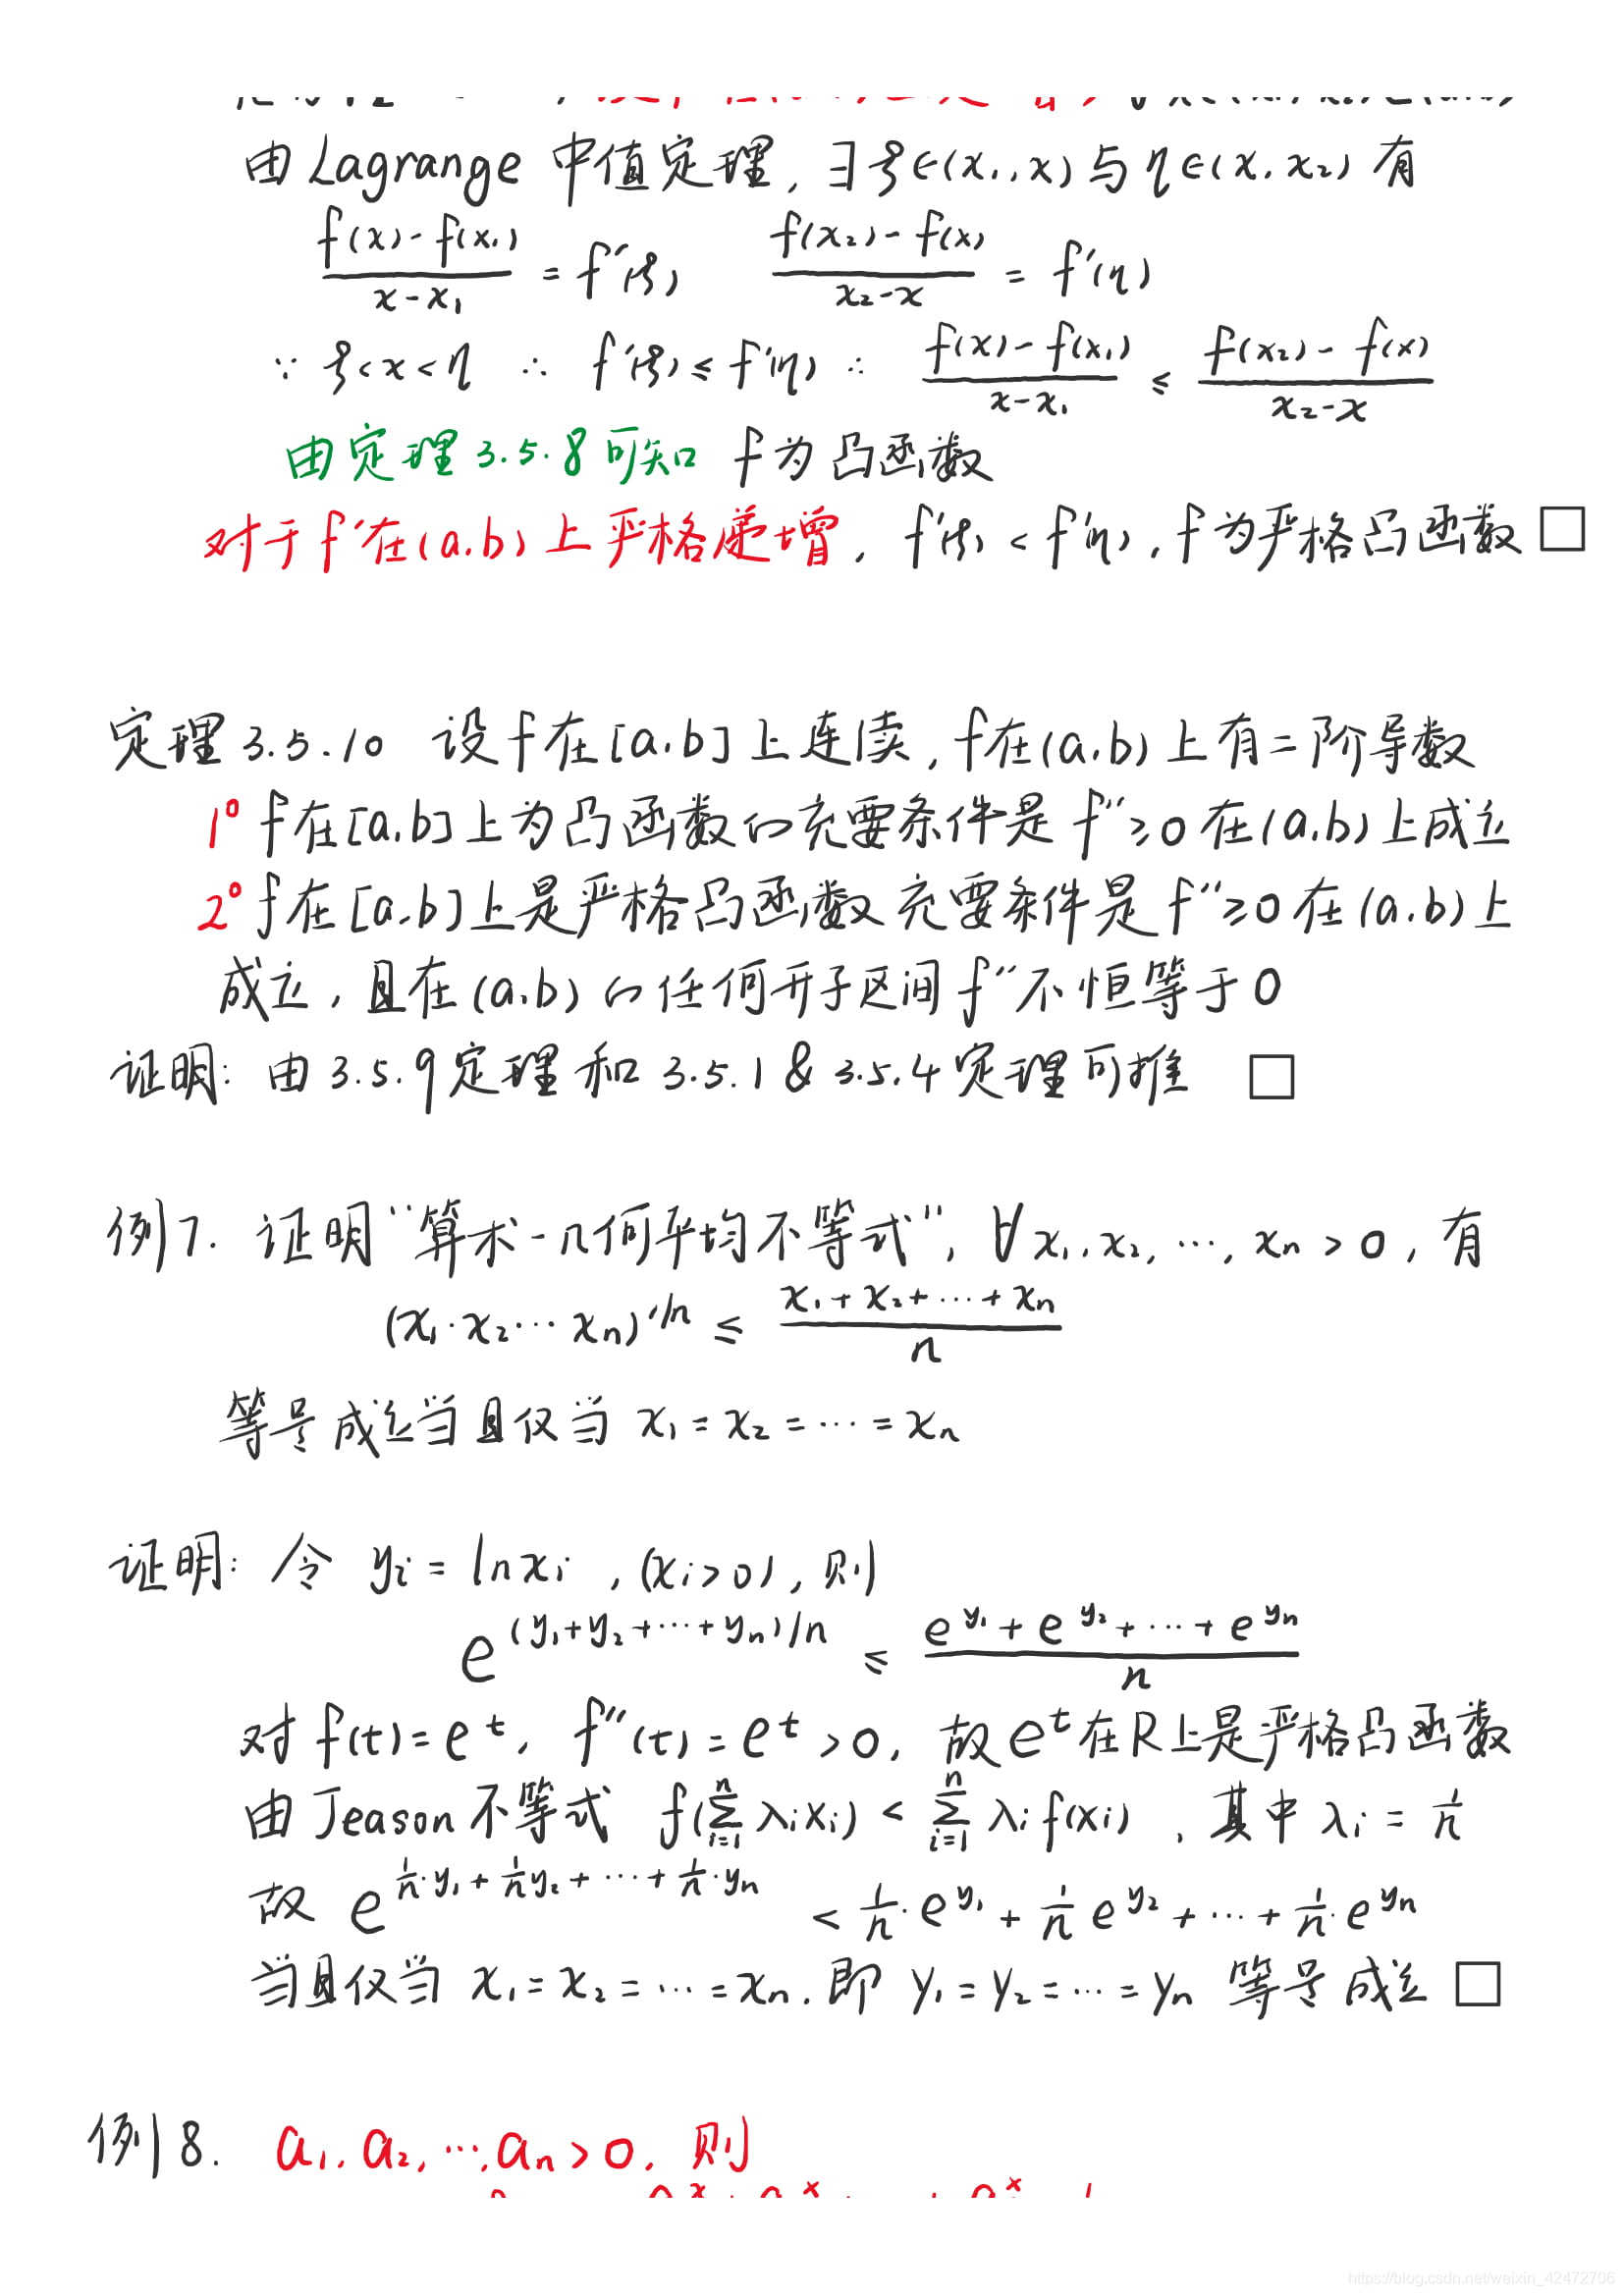 由 Lagrange 中值定理, ∃ξ∈(x₁,x) 与 η∈(x,x₂) 有
(f(x)-f(x₁))/(x-x₁) = f′(ξ) (f(x₂)-f(x))/(x₂-x) = f′(η)
∵ ξ<x<η ∴ f′(ξ)≤f′(η) ∴ (f(x)-f(x₁))/(x-x₁) ≤ (f(x₂)-f(x))/(x₂-x)
由定理3.5.8可知 f为凸函数
对于f′在(a,b)上严格递增, f′(ξ)<f′(η), f为严格凸函数 □
定理3.5.10 设f在[a,b]上连续, f在(a,b)上有二阶导数
1° f在[a,b]上为凸函数的充要条件是 f″≥0 在(a,b)上成立
2° f在[a,b]上是严格凸函数充要条件是 f″≥0 在(a,b)上
成立, 且在(a,b)的任何开子区间 f″不恒等于0
证明: 由3.5.9定理和3.5.1&3.5.4定理可推 □
例7. 证明"算术-几何平均不等式", ∀x₁,x₂,…,xₙ>0, 有
(x₁·x₂…xₙ)^1/n ≤ (x₁+x₂+…+xₙ)/n
等号成立当且仅当 x₁=x₂=…=xₙ
证明: 令 yᵢ=lnxᵢ, (xᵢ>0), 则
e^(y₁+y₂+…+yₙ)/n ≤ (e^y₁+e^y₂+…+e^yₙ)/n
对 f(t)=e^t, f″(t)=e^t>0, 故e^t在R上是严格凸函数
由Jeason不等式 f(∑_{i=1}^n λᵢxᵢ) < ∑_{i=1}^n λᵢf(xᵢ), 其中 λᵢ=1/n
故 e^{1/n·y₁+1/n y₂+…+1/n·yₙ} < 1/n·e^y₁+1/n e^y₂+…+1/n·e^yₙ
当且仅当 x₁=x₂=…=xₙ.即 y₁=y₂=…=yₙ 等号成立 □
例8. a₁,a₂,…,aₙ>0, 则
https://blog.csdn.net/weixin_42472706